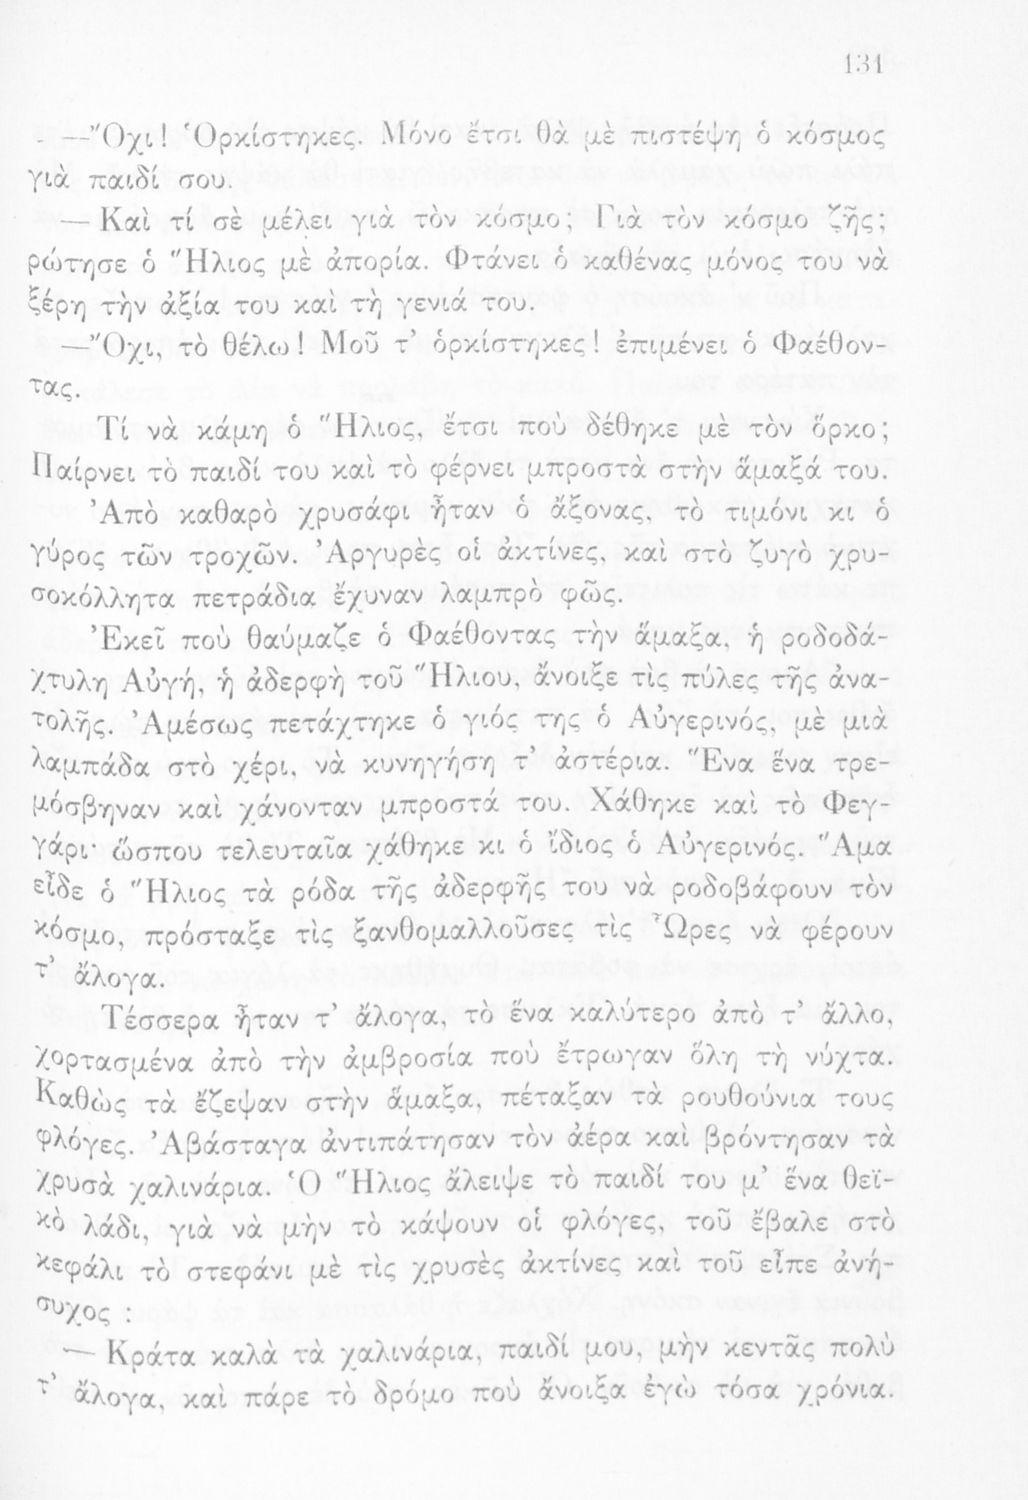 131
—Ὄχι! Ὁρκίστηκες. Μόνο ἔτσι θὰ μὲ πιστέψη ὁ κόσμος
γιὰ παιδί σου.
— Καὶ τί σὲ μέλει γιὰ τὸν κόσμο; Γιὰ τὸν κόσμο ζῆς;
ρώτησε ὁ Ἥλιος μὲ ἀπορία. Φτάνει ὁ καθένας μόνος του νὰ
ξέρη τὴν ἀξία του καὶ τὴ γενιά του.
—Ὄχι, τὸ θέλω! Μοῦ τ’ ὁρκίστηκες! ἐπιμένει ὁ Φαέθον-
τας.
Τί νὰ κάμη ὁ Ἥλιος, ἔτσι ποὺ δέθηκε μὲ τὸν ὅρκο;
Παίρνει τὸ παιδί του καὶ τὸ φέρνει μπροστὰ στὴν ἅμαξά του.
Ἀπὸ καθαρὸ χρυσάφι ἦταν ὁ ἄξονας, τὸ τιμόνι κι ὁ
γύρος τῶν τροχῶν. Ἀργυρὲς οἱ ἀκτίνες, καὶ στὸ ζυγὸ χρυ-
σοκόλλητα πετράδια ἔχυναν λαμπρὸ φῶς.
Ἐκεῖ ποὺ θαύμαζε ὁ Φαέθοντας τὴν ἅμαξα, ἡ ροδοδά-
χτυλη Αὐγή, ἡ ἀδερφὴ τοῦ Ἥλιου, ἄνοιξε τὶς πύλες τῆς ἀνα-
τολῆς. Ἀμέσως πετάχτηκε ὁ γιός της ὁ Αὐγερινός, μὲ μιὰ
λαμπάδα στὸ χέρι, νὰ κυνηγήση τ’ ἀστέρια. Ἕνα ἕνα τρε-
μόσβηναν καὶ χάνονταν μπροστά του. Χάθηκε καὶ τὸ Φεγ-
γάρι· ὥσπου τελευταῖα χάθηκε κι ὁ ἴδιος ὁ Αὐγερινός. Ἅμα
εἶδε ὁ Ἥλιος τὰ ρόδα τῆς ἀδερφῆς του νὰ ροδοβάφουν τὸν
κόσμο, πρόσταξε τὶς ξανθομαλλοῦσες τὶς Ὧρες νὰ φέρουν
τ’ ἄλογα.
Τέσσερα ἦταν τ’ ἄλογα, τὸ ἕνα καλύτερο ἀπὸ τ’ ἄλλο,
χορτασμένα ἀπὸ τὴν ἀμβροσία ποὺ ἔτρωγαν ὅλη τὴ νύχτα.
Καθὼς τὰ ἔζεψαν στὴν ἅμαξα, πέταξαν τὰ ρουθούνια τους
φλόγες. Ἀβάσταγα ἀντιπάτησαν τὸν ἀέρα καὶ βρόντησαν τὰ
χρυσὰ χαλινάρια. Ὁ Ἥλιος ἄλειψε τὸ παιδί του μ’ ἕνα θεϊ-
κὸ λάδι, γιὰ νὰ μὴν τὸ κάψουν οἱ φλόγες, τοῦ ἔβαλε στὸ
κεφάλι τὸ στεφάνι μὲ τὶς χρυσὲς ἀκτίνες καὶ τοῦ εἶπε ἀνή-
συχος :
— Κράτα καλὰ τὰ χαλινάρια, παιδί μου, μὴν κεντᾶς πολὺ
τ’ ἄλογα, καὶ πάρε τὸ δρόμο ποὺ ἄνοιξα ἐγὼ τόσα χρόνια.